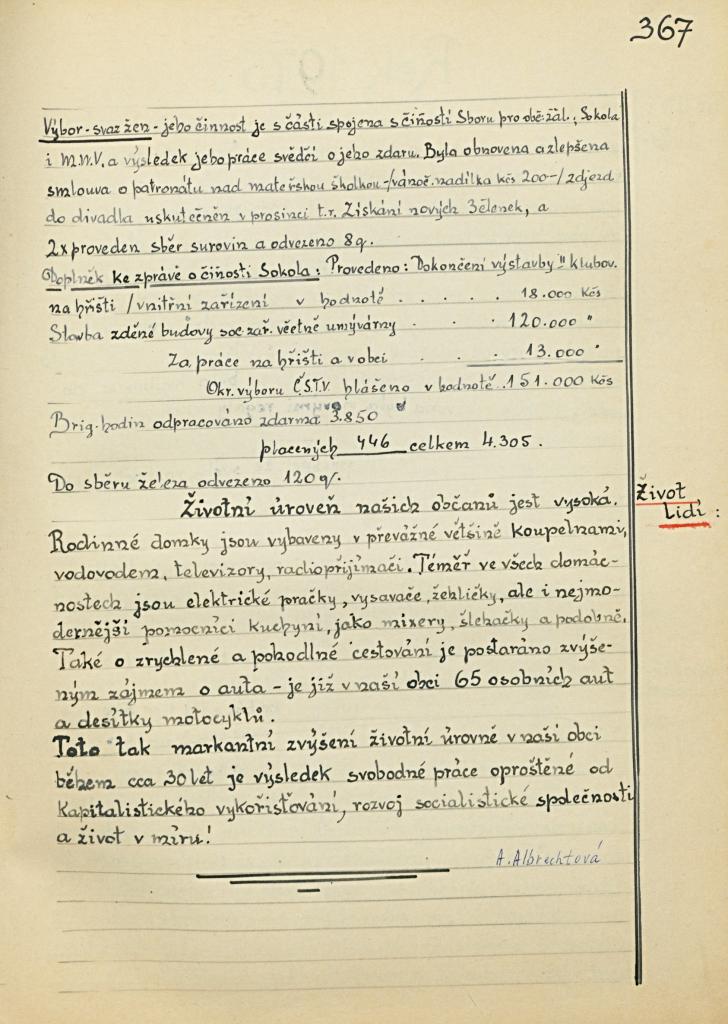 367
Výbor - svaz žen - jeho činnost je s části spojena s čiností Sboru pro obč. zál., Sokola
i M.N.V. a výsledek jeho práce svědčí o jeho zdaru. Byla obnovena a zlepšena
smlouva o patronátu nad mateřskou školkou -/vánoč. nadílka kčs 200-/ zájezd
do divadla uskutečněn v prosinci t.r. Získání nových 3 členek, a
2x proveden sběr surovin a odvezeno 8 q.
Doplněk ke zprávě o činosti Sokola: Provedeno: Dokončení výstavby " klubov.
na hřišti /vnitřní zařízení v hodnotě . . . . . 18.000 Kčs
Stavba zděné budovy soc. zař. včetně umývárny . . . 120.000 "
Za práce na hřišti a v obci . . 13.000 "
Okr. výboru Č.S.T.V. hlášeno v hodnotě . 151.000 Kčs
Brig. hodin odpracováno zdarma 3.850
placených 446 celkem 4.305.
Do sběru železa odvezeno 120 q.
Životní úroveň našich občanů jest vysoká.
Život
Lidí:
Rodinné domky jsou vybaveny v převážné většině koupelnami,
vodovodem, televizory, radiopřijímači. Téměř ve všech domác-
nostech jsou elektrické pračky, vysavače, žehličky, ale i nejmo-
dernější pomocníci kuchyní, jako mixery, šlehačky a podobně.
Také o zrychlené a pohodlné cestování je postaráno zvýše-
ným zájmem o auta - je již v naší obci 65 osobních aut
a desítky motocyklů.
Toto tak markantní zvýšení životní úrovně v naší obci
během cca 30 let je výsledek svobodné práce oproštěné od
kapitalistického vykořisťování, rozvoj socialistické společnosti
a život v míru!
A. Albrechtová